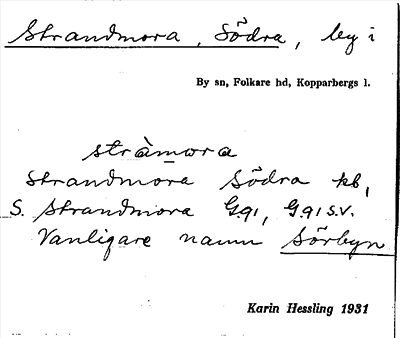 Strandmora, Södra, by i
By sn, Folkare hd, Kopparbergs l.
stràmora
Strandmora Södra kb,
S. Strandmora G.91, G.91 s.v.
Vanligare namn Sörbyn
Karin Hessling 1931